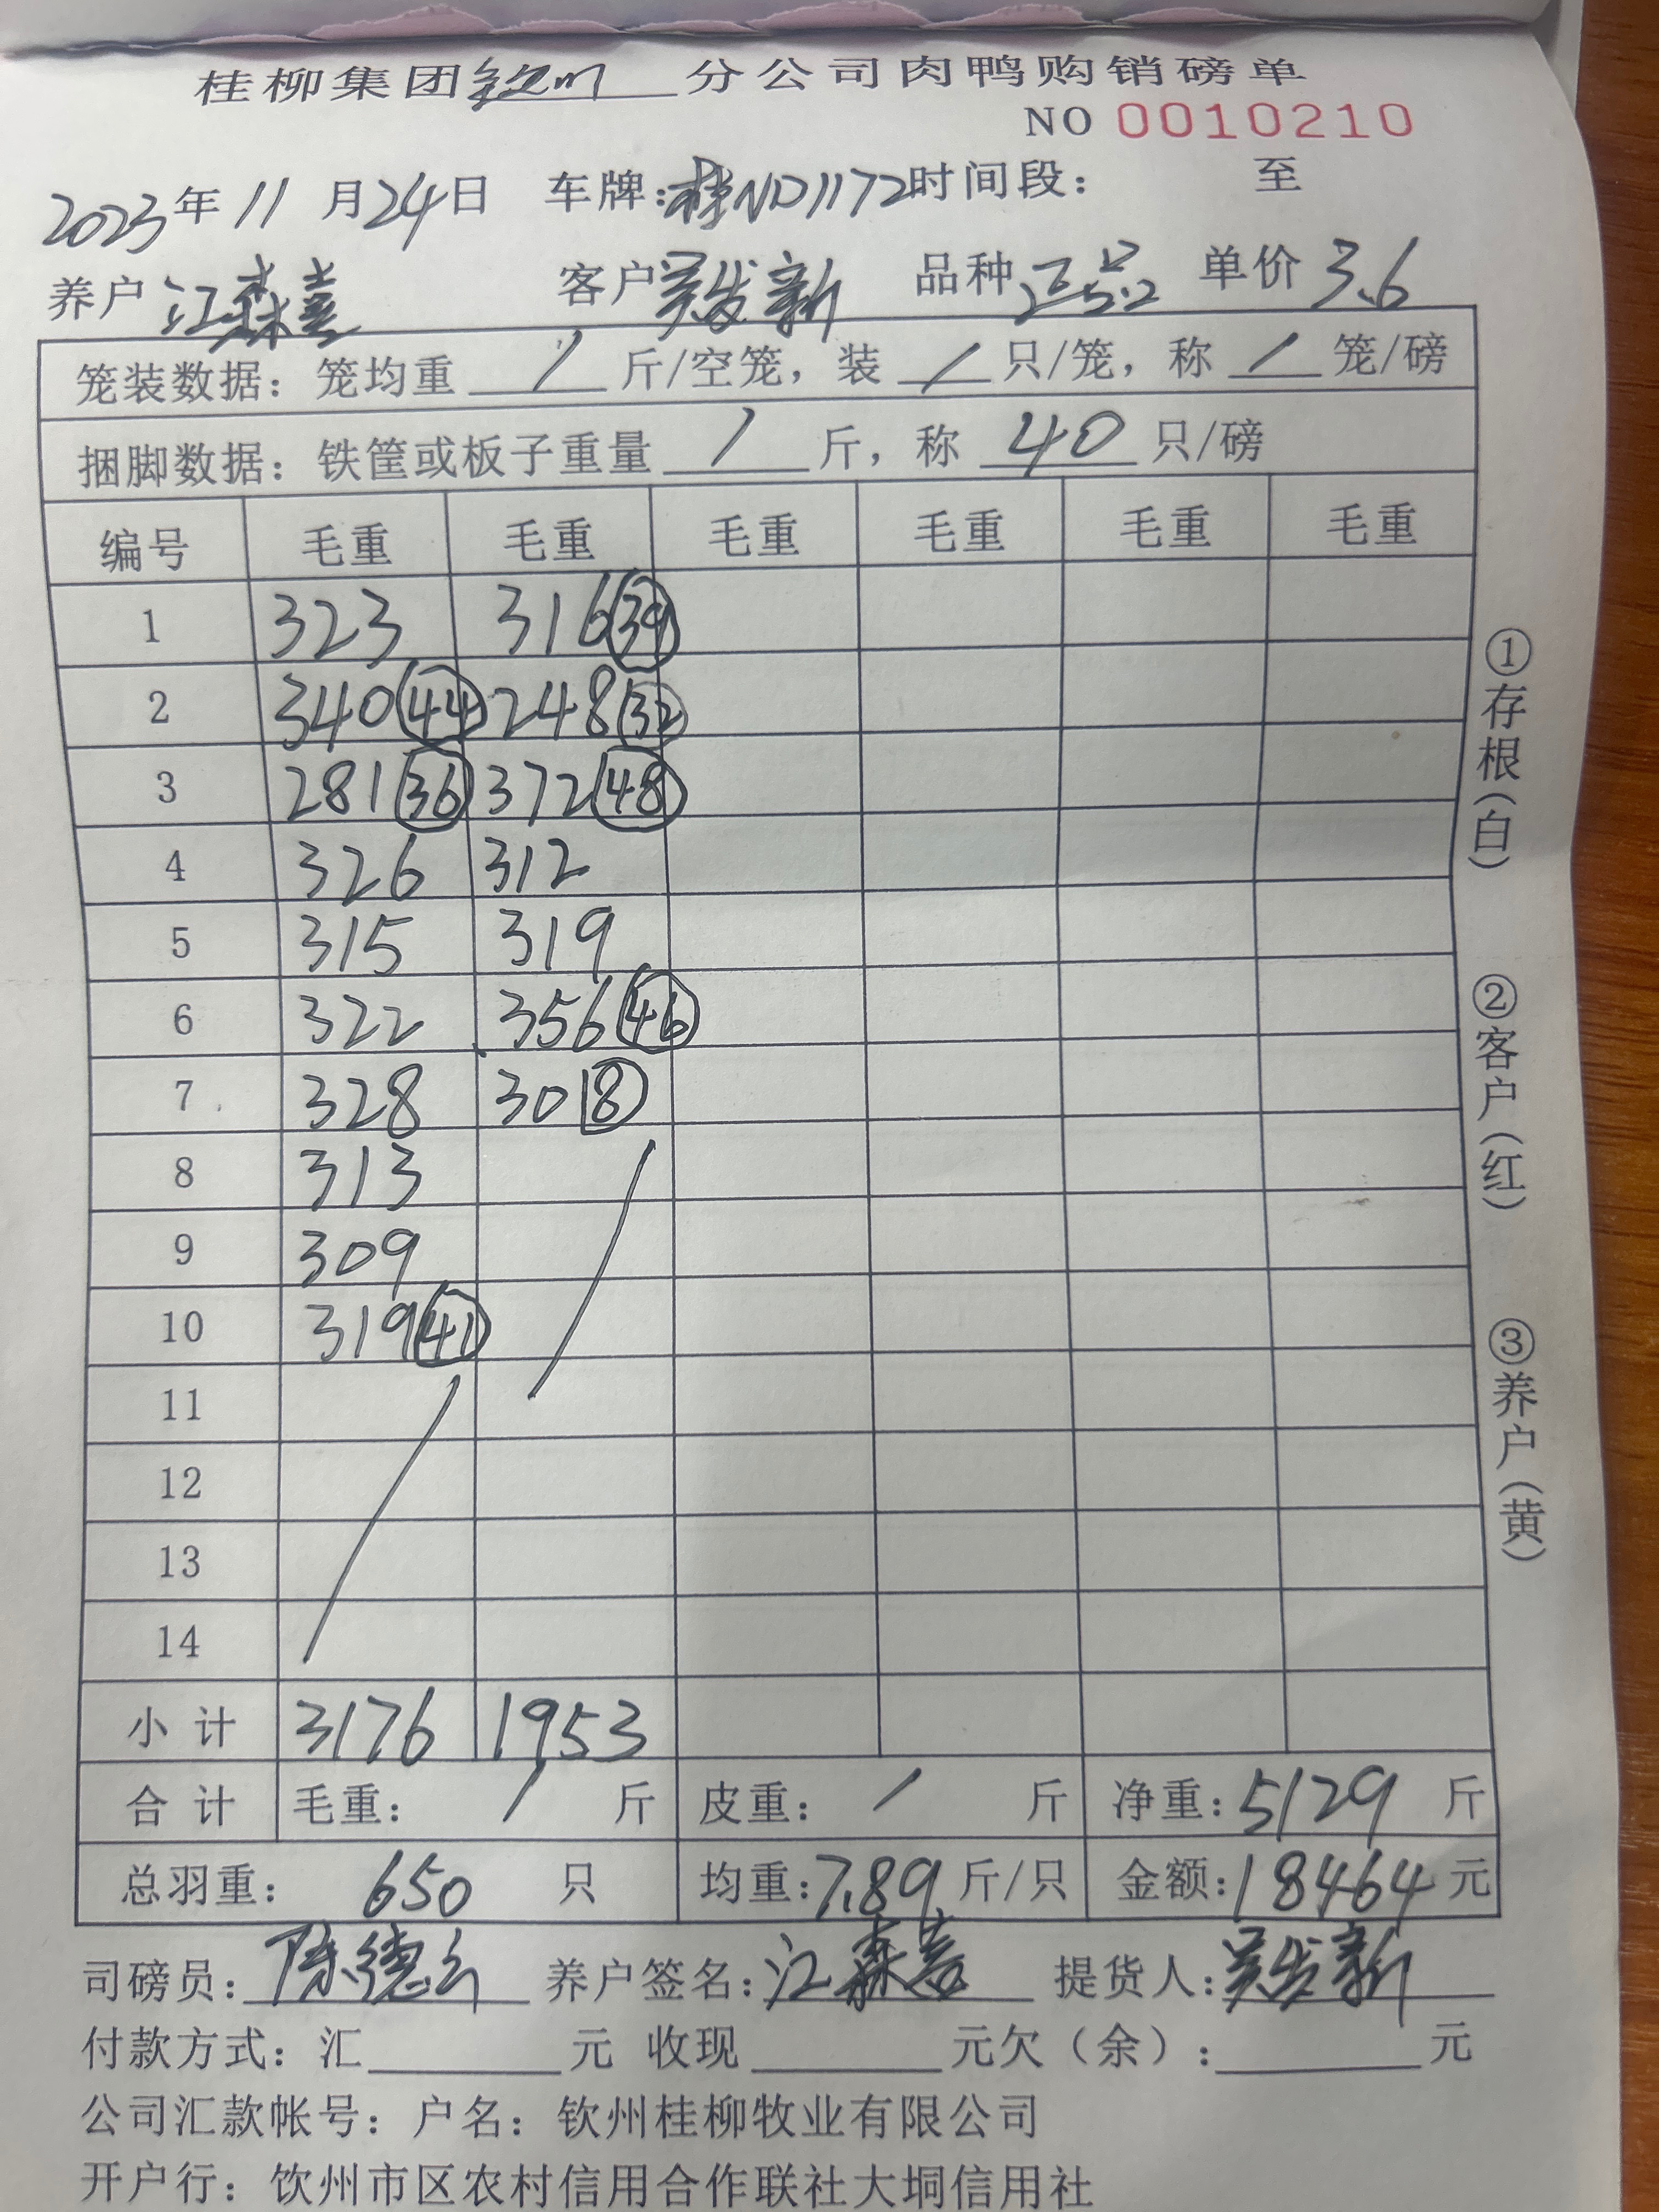 桂柳集团钦州分公司肉鸭购销磅单
NO 0010210
2023年11月24日 车牌:桂ND1172 时间段: 至
养户 江森喜 客户 吴发新 品种 正品2 单价 3.6
笼装数据: 笼均重 / 斤/空笼, 装 / 只/笼, 称 / 笼/磅
捆脚数据: 铁筐或板子重量 / 斤, 称 40 只/磅
编号 毛重 毛重 毛重 毛重 毛重 毛重
1 323 316 (39)
2 340 (44) 248 (32)
3 281 (36) 372 (48)
4 326 312
5 315 319
6 322 356 (46)
7 328 30 (8)
8 313
9 309
10 319 (41)
11
12
13
14
小计 3176 1953
合计 毛重: / 斤 皮重: / 斤 净重: 5129 斤
总羽重: 650 只 均重: 7.89 斤/只 金额: 18464 元
司磅员: 陈德云 养户签名: 江森喜 提货人: 吴发新
付款方式: 汇 元 收现 元欠(余): 元
公司汇款帐号: 户名: 钦州桂柳牧业有限公司
开户行: 饮州市区农村信用合作联社大垌信用社
①存根(白)
②客户(红)
③养户(黄)